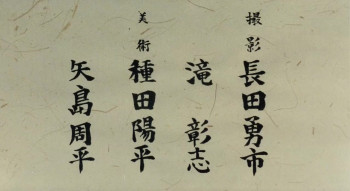 撮影
長田勇市
滝彰志
美術
種田陽平
矢島周平